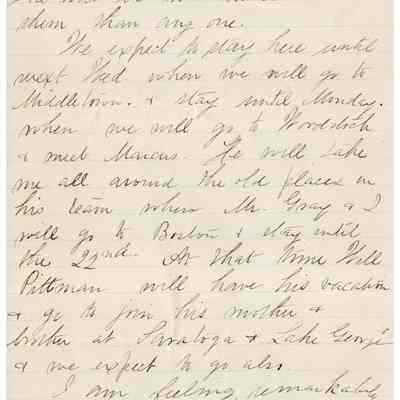 them than any one.
We expect to stay here until
next Wed when we will go to
Middletown. & stay until Monday.
when we will go to Woodstock
& meet Marcus. He will take
me all around the old places in
his team when Mr. Gray & I
will go to Boston & stay until
the 22nd. At that time Will
Pittman will have his vacation
& go to join his mother &
brother at Saratoga & Lake George
& we expect to go also.
I am feeling remarkably